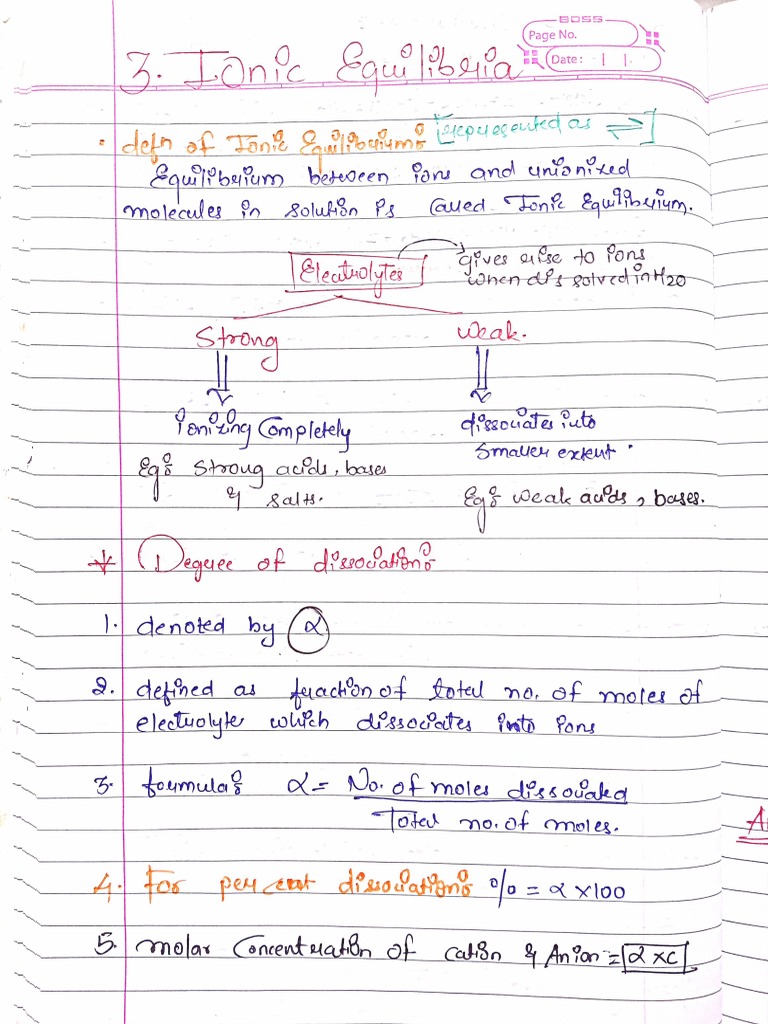 BOSS
Page No.
Date: | |.
3. Ionic Equilibria
• defn of Ionic Equilibrium: [represented as ⇌]
Equilibrium between ions and unionized
molecules in solution is called Ionic Equilibrium.
Electrolytes → gives rise to ions
when dissolved in H2O
Strong weak.
ionizing Completely dissociates into
smaller extent.
Eg: Strong acids, bases
& salts. Eg: weak acids, bases.
* Degree of dissociation:
1. denoted by α
2. defined as fraction of total no. of moles of
electrolyte which dissociates into ions
3. formula: α = No. of moles dissociated
Total no. of moles.
4. For per cent dissociation: % = α × 100
5. molar Concentration of cation & Anion = α × c